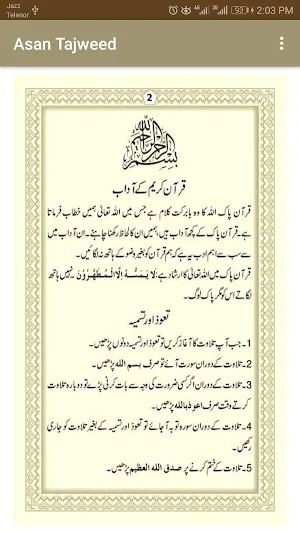 Jazz
Telenor
4G
3G
93
2:03 PM
Asan Tajweed
2
بسم الله الرحمن الرحيم
قرآن کریم کے آداب
قرآن پاک اللہ کا وہ بابرکت کلام ہے جس میں اللہ تعالیٰ ہمیں خطاب فرماتا
ہے۔ قرآن پاک کے کچھ آداب ہیں، ہمیں ان کا لحاظ رکھنا چاہئے۔ ان آداب میں
سے سب سے اہم ادب یہ ہے کہ ہم قرآن کو بغیر وضو کے ہاتھ نہ لگائیں۔
قرآن پاک میں اللہ تعالیٰ کا ارشاد ہے: لَا یَمَسُّہٗ اِلَّا الْمُطَھَّرُوْنَ نہیں ہاتھ
لگاتے اس کو مگر پاک لوگ۔
تعوذ اور تسمیہ
1۔ جب آپ تلاوت کا آغاز کریں تو تعوذ اور تسمیہ دونوں پڑھیں۔
2۔ تلاوت کے دوران سورت آئے تو صرف بسم اللہ پڑھیں۔
3۔ تلاوت کے دوران اگر کسی ضرورت کی وجہ سے بات کرنی پڑے تو دوبارہ تلاوت
کرتے وقت صرف اعوذ باللہ پڑھیں۔
4۔ تلاوت کے دوران سورہ توبہ آ جائے تو تعوذ اور تسمیہ کے بغیر تلاوت کو جاری
رکھیں۔
5۔ تلاوت کے ختم کرنے پر صدق اللہ العظیم پڑھیں۔